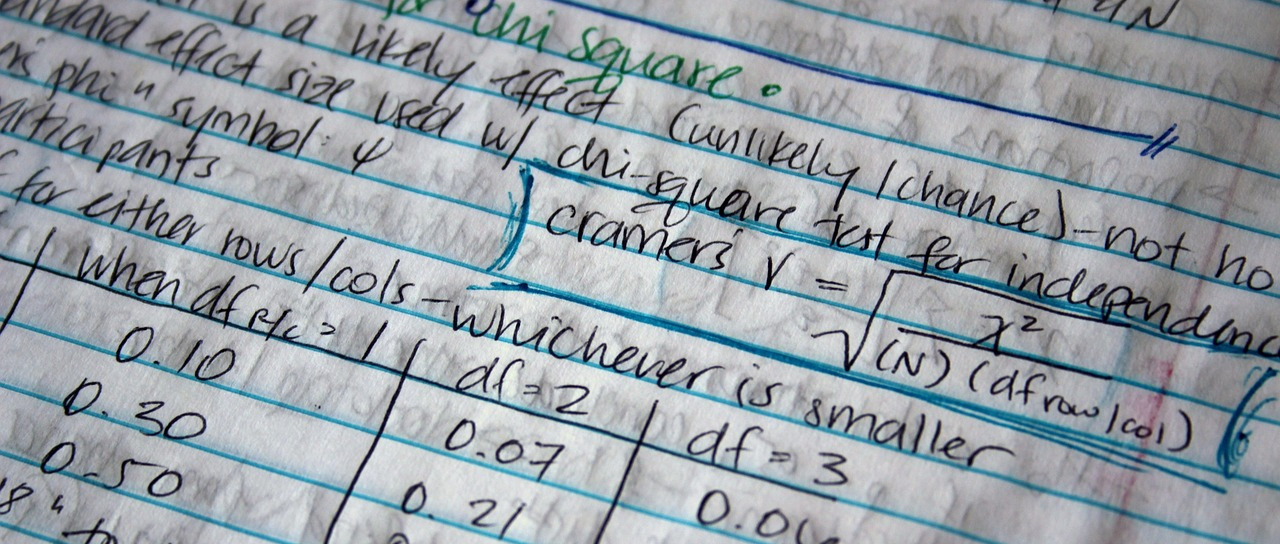 for chi square.
is a likely effect (unlikely/chance) - not
effect size used w/ chi-square test for
phi" symbol: φ
cramers' V = √ χ² / (N)(df row/col)
for either rows/cols - whichever is smaller
when df R/C = 1 | df = 2 | df = 3
0.10 | 0.07 | 0.0
0.30 | 0.21
0.50